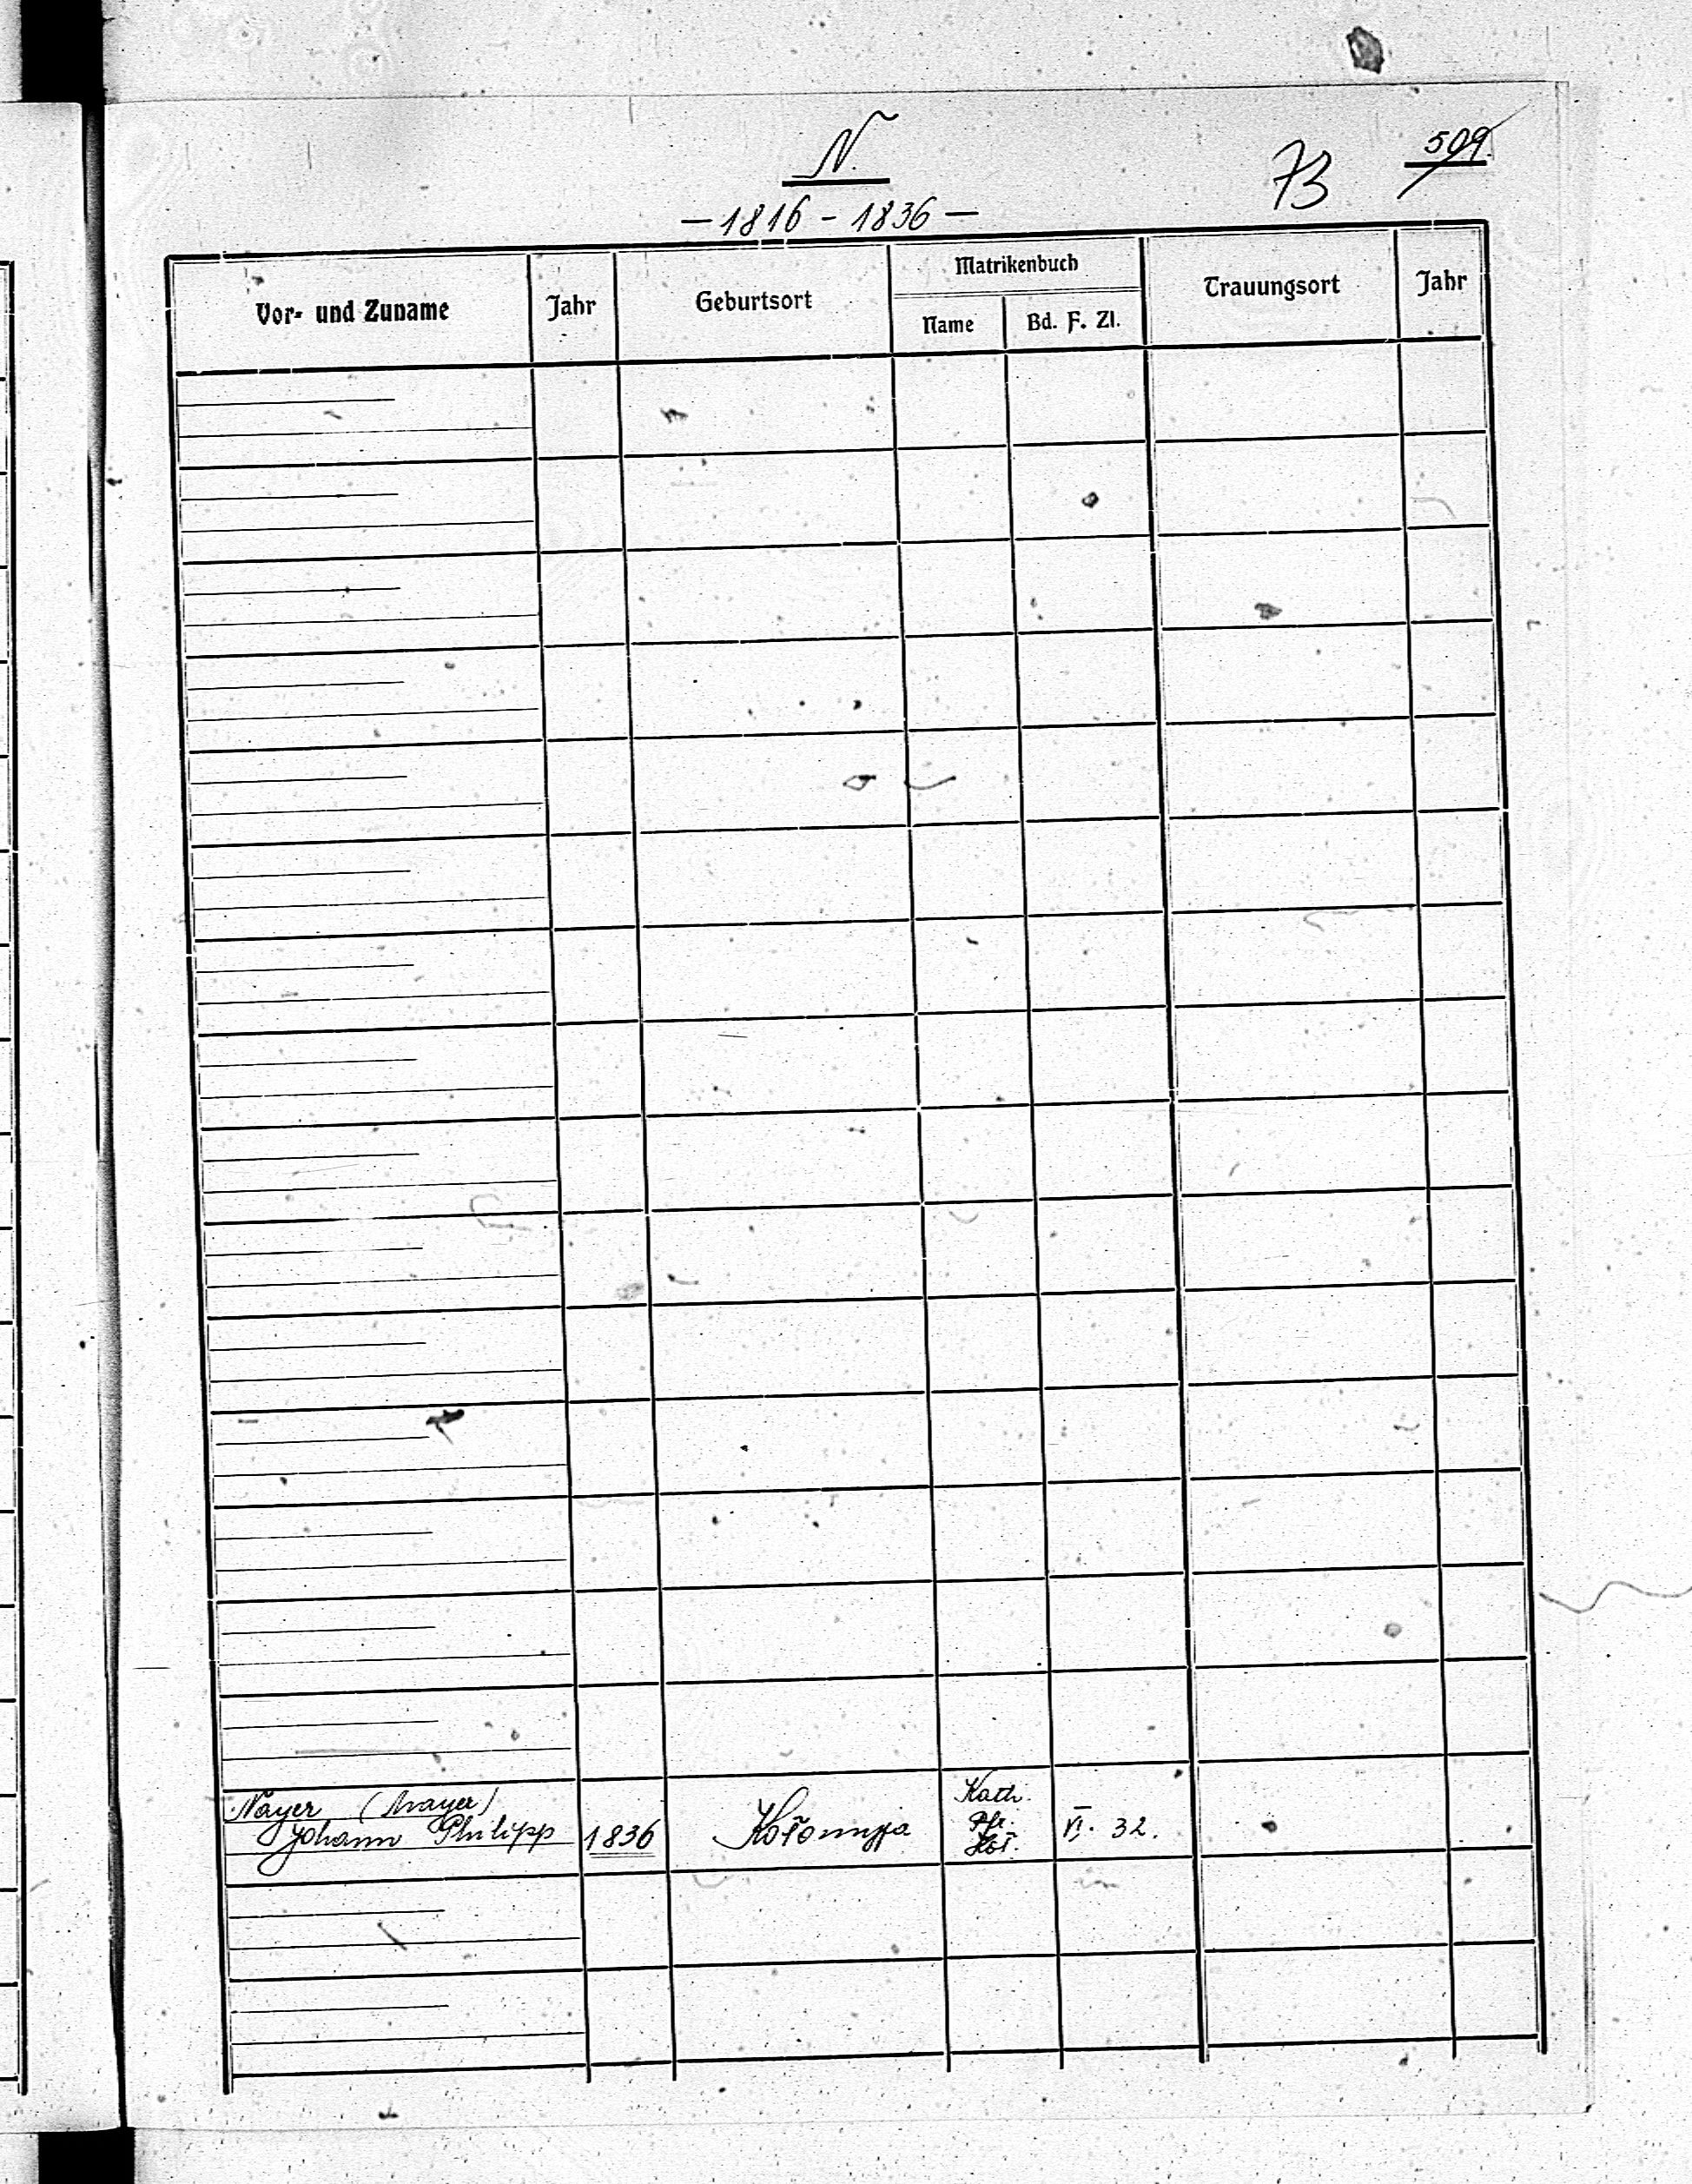 N.
73
509.
— 1816 - 1836 —
Vor- und Zuname Jahr Geburtsort Matrikenbuch Trauungsort Jahr
Name Bd. F. Zl.
Nayer (Mayer)
Johann Philipp 1836 Kołomyja Kath. VI. 32.
Pfr.
Koł.